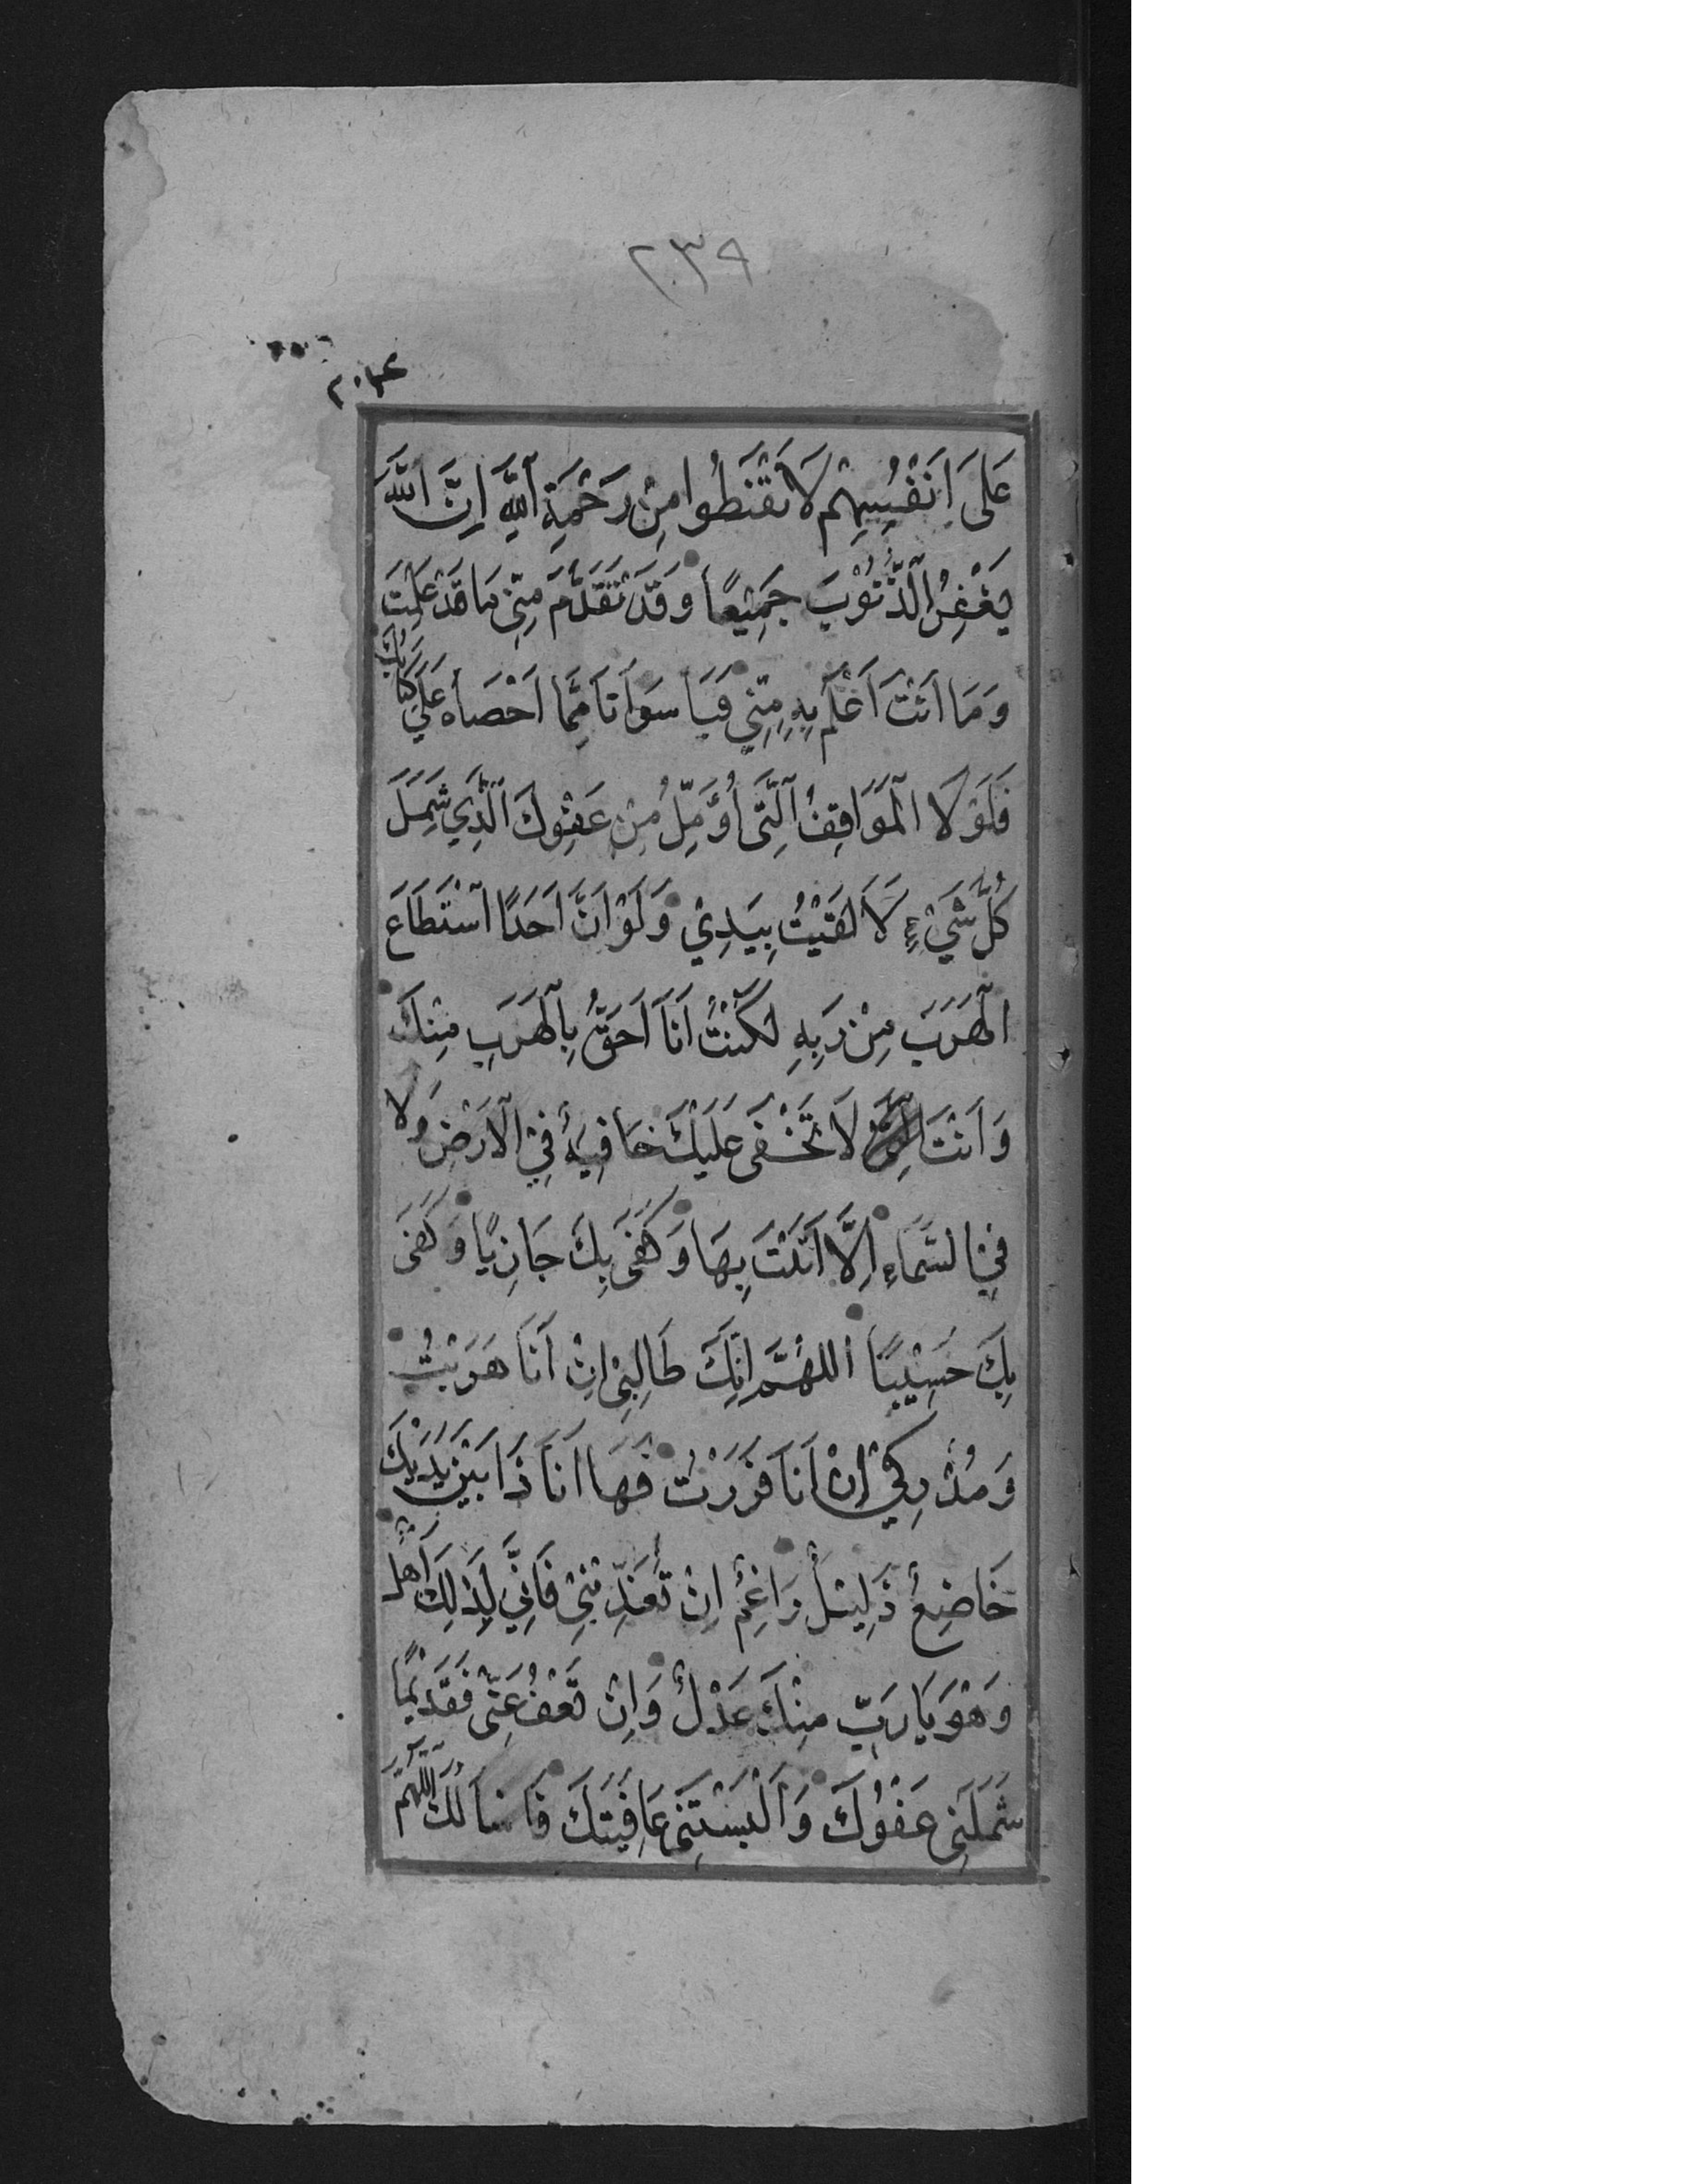 ٢٣٩
عَلَى اَنْفُسِهِمْ لَا تَقْنَطُوا مِنْ رَحْمَةِ اللّٰهِ اِنَّ اللّٰهَ
يَغْفِرُ الذُّنُوْبَ جَمِيْعًا وَقَدْ تَقَدَّمَ مِنِّىْ مَا قَدْ عَلِمْتَ
وَمَا اَنْتَ اَعْلَمُ بِهِ مِنِّيْ فَيَا سَوْاَتَا مِمَّا اَحْصَاهُ عَلَيَّ كِتَابُكَ
فَلَوْلَا الْمَوَاقِفُ الَّتِى اُؤَمِّلُ مِنْ عَفْوِكَ الَّذِي شَمِلَ
كُلَّ شَيْءٍ لَاَلْقَيْتُ بِيَدِيْ وَلَوْ اَنَّ اَحَدًا اسْتَطَاعَ
الْهَرَبَ مِنْ رَبِهِ لَكُنْتُ اَنَا اَحَقُّ بِالْهَرَبِ مِنْكَ
وَاَنْتَ لَا تَخْفَى عَلَيْكَ خَافِيَةٌ فِي الْاَرْضِ وَلَا
فِيْ السَّمَاءِ اِلَّا اَتَيْتَ بِهَا وَكَفَى بِكَ جَازِيًا وَكَفَى
بِكَ حَسِيْبًا اَللّٰهُمَّ اِنَّكَ طَالِبِىْ اِنْ اَنَا هَرَبْتُ
وَمُدْرِكِيْ اِنْ اَنَا فَرَرْتُ فَهَا اَنَا ذَا بَيْنَ يَدَيْكَ
خَاضِعٌ ذَلِيْلٌ رَاغِمٌ اِنْ تُعَذِّبْنِىْ فَاِنِّيْ لِذٰلِكَ اَهْلٌ
وَهُوَ يَا رَبِّ مِنْكَ عَدْلٌ وَاِنْ تَعْفُ عَنِّىْ فَقَدِيْمًا
شَمَلَنِى عَفْوُكَ وَاَلْبَسْتَنِى عَافِيَتَكَ فَاَسْاَلُكَ اللّٰهُمَّ